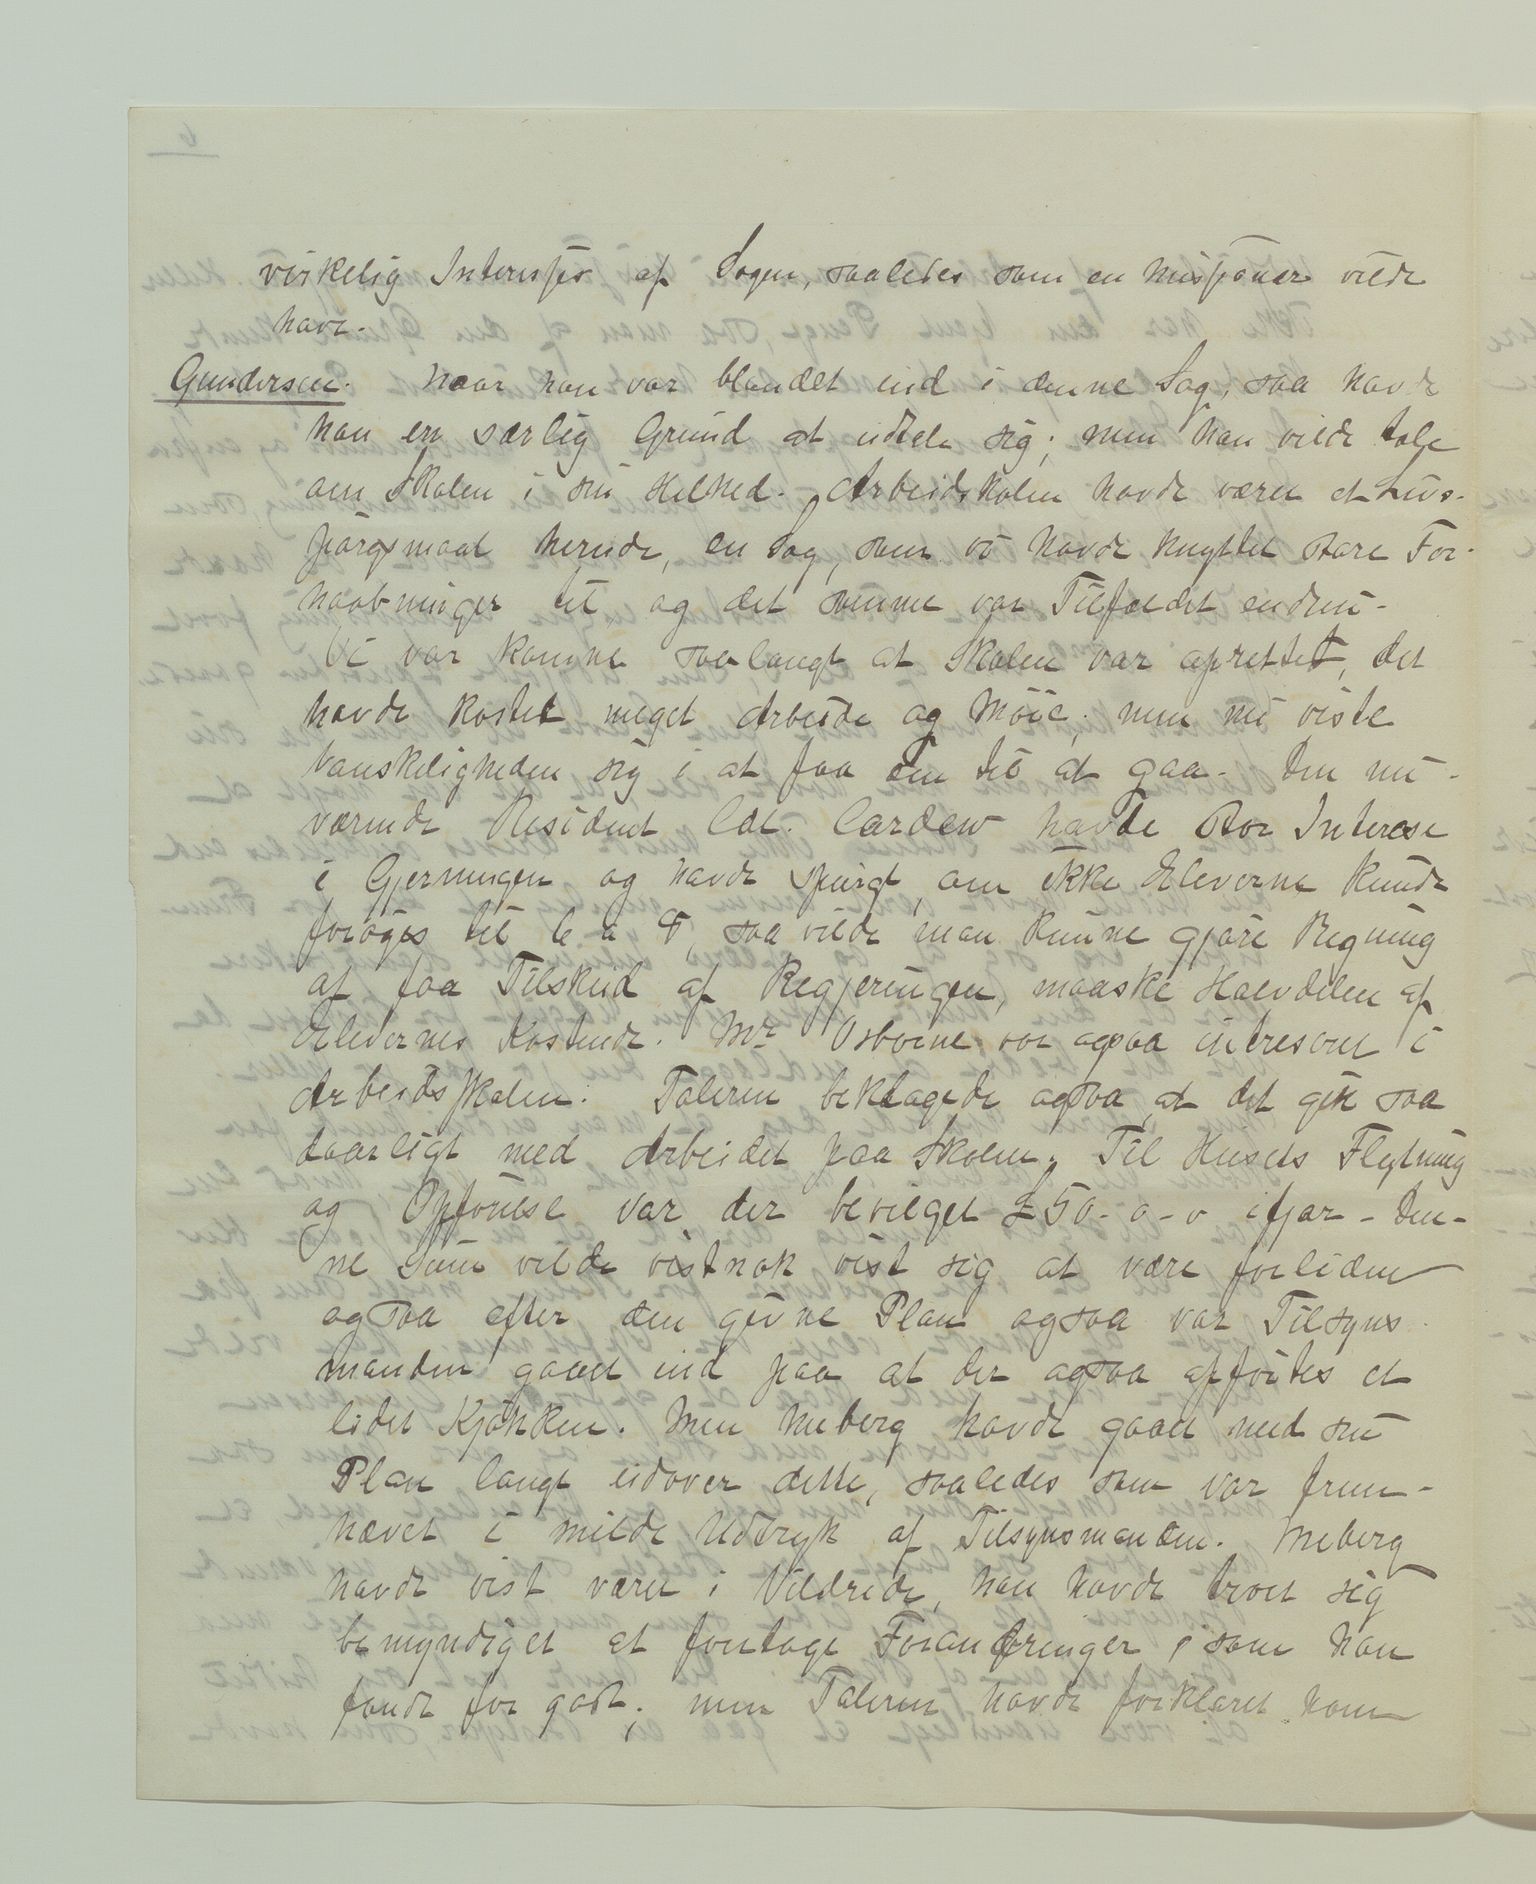 virkelig Interesse af Sagen, saaledes som en Missionær vilde
have.
Gundersen. Naar han var blandet ind i denne Sag, saa havde
han en særlig Grund at udtale sig; men han vilde tale
om Skolen i sin Helhed. Arbeidsskolen havde været et Livs-
spørgsmaal herude, en Sag, som vi havde knyttet store For-
haabninger til og det samme var Tilfældet endnu.
Vi var komne saalangt at Skolen var oprettet, det
havde kostet meget Arbeide og Møie; men nu viste
Vanskeligheden sig i at faa den til at gaa. Den nu-
værende Resident Col. Cardew havde stor Interesse
i Gjerningen og havde spurgt, om ikke Eleverne kunde
forøges til 6 a 8, saa vilde man kunne gjøre Regning
at faa Tilskud af Regjeringen, maaske Halvdelen af
Elevernes Kostende. Mr Osborne var ogsaa intreseret i
Arbeidsskolen. Taleren beklagede ogsaa at det gik saa
daarligt med Arbeidet paa Skolen. Til Husets Flytning
og Opførelse var der bevilget £50-0-0 ifjor - Den-
ne Sum vilde vistnok vist sig at være forliden
ogsaa efter den givne Plan ogsaa var Tilsyns
manden gaaet ind paa at der ogsaa opførtes et
lidet Kjøkken. Men Meberg havde gaaet med sin
Plan langt udover dette, saaledes som var frem-
hævet i milde Udtryk af Tilsynsmanden. Meberg
havde vist været i Vildrede, han havde troet sig
bemyndiget at foretage Forandringer, som han
fandt for godt; men Taleren havde forklaret ham